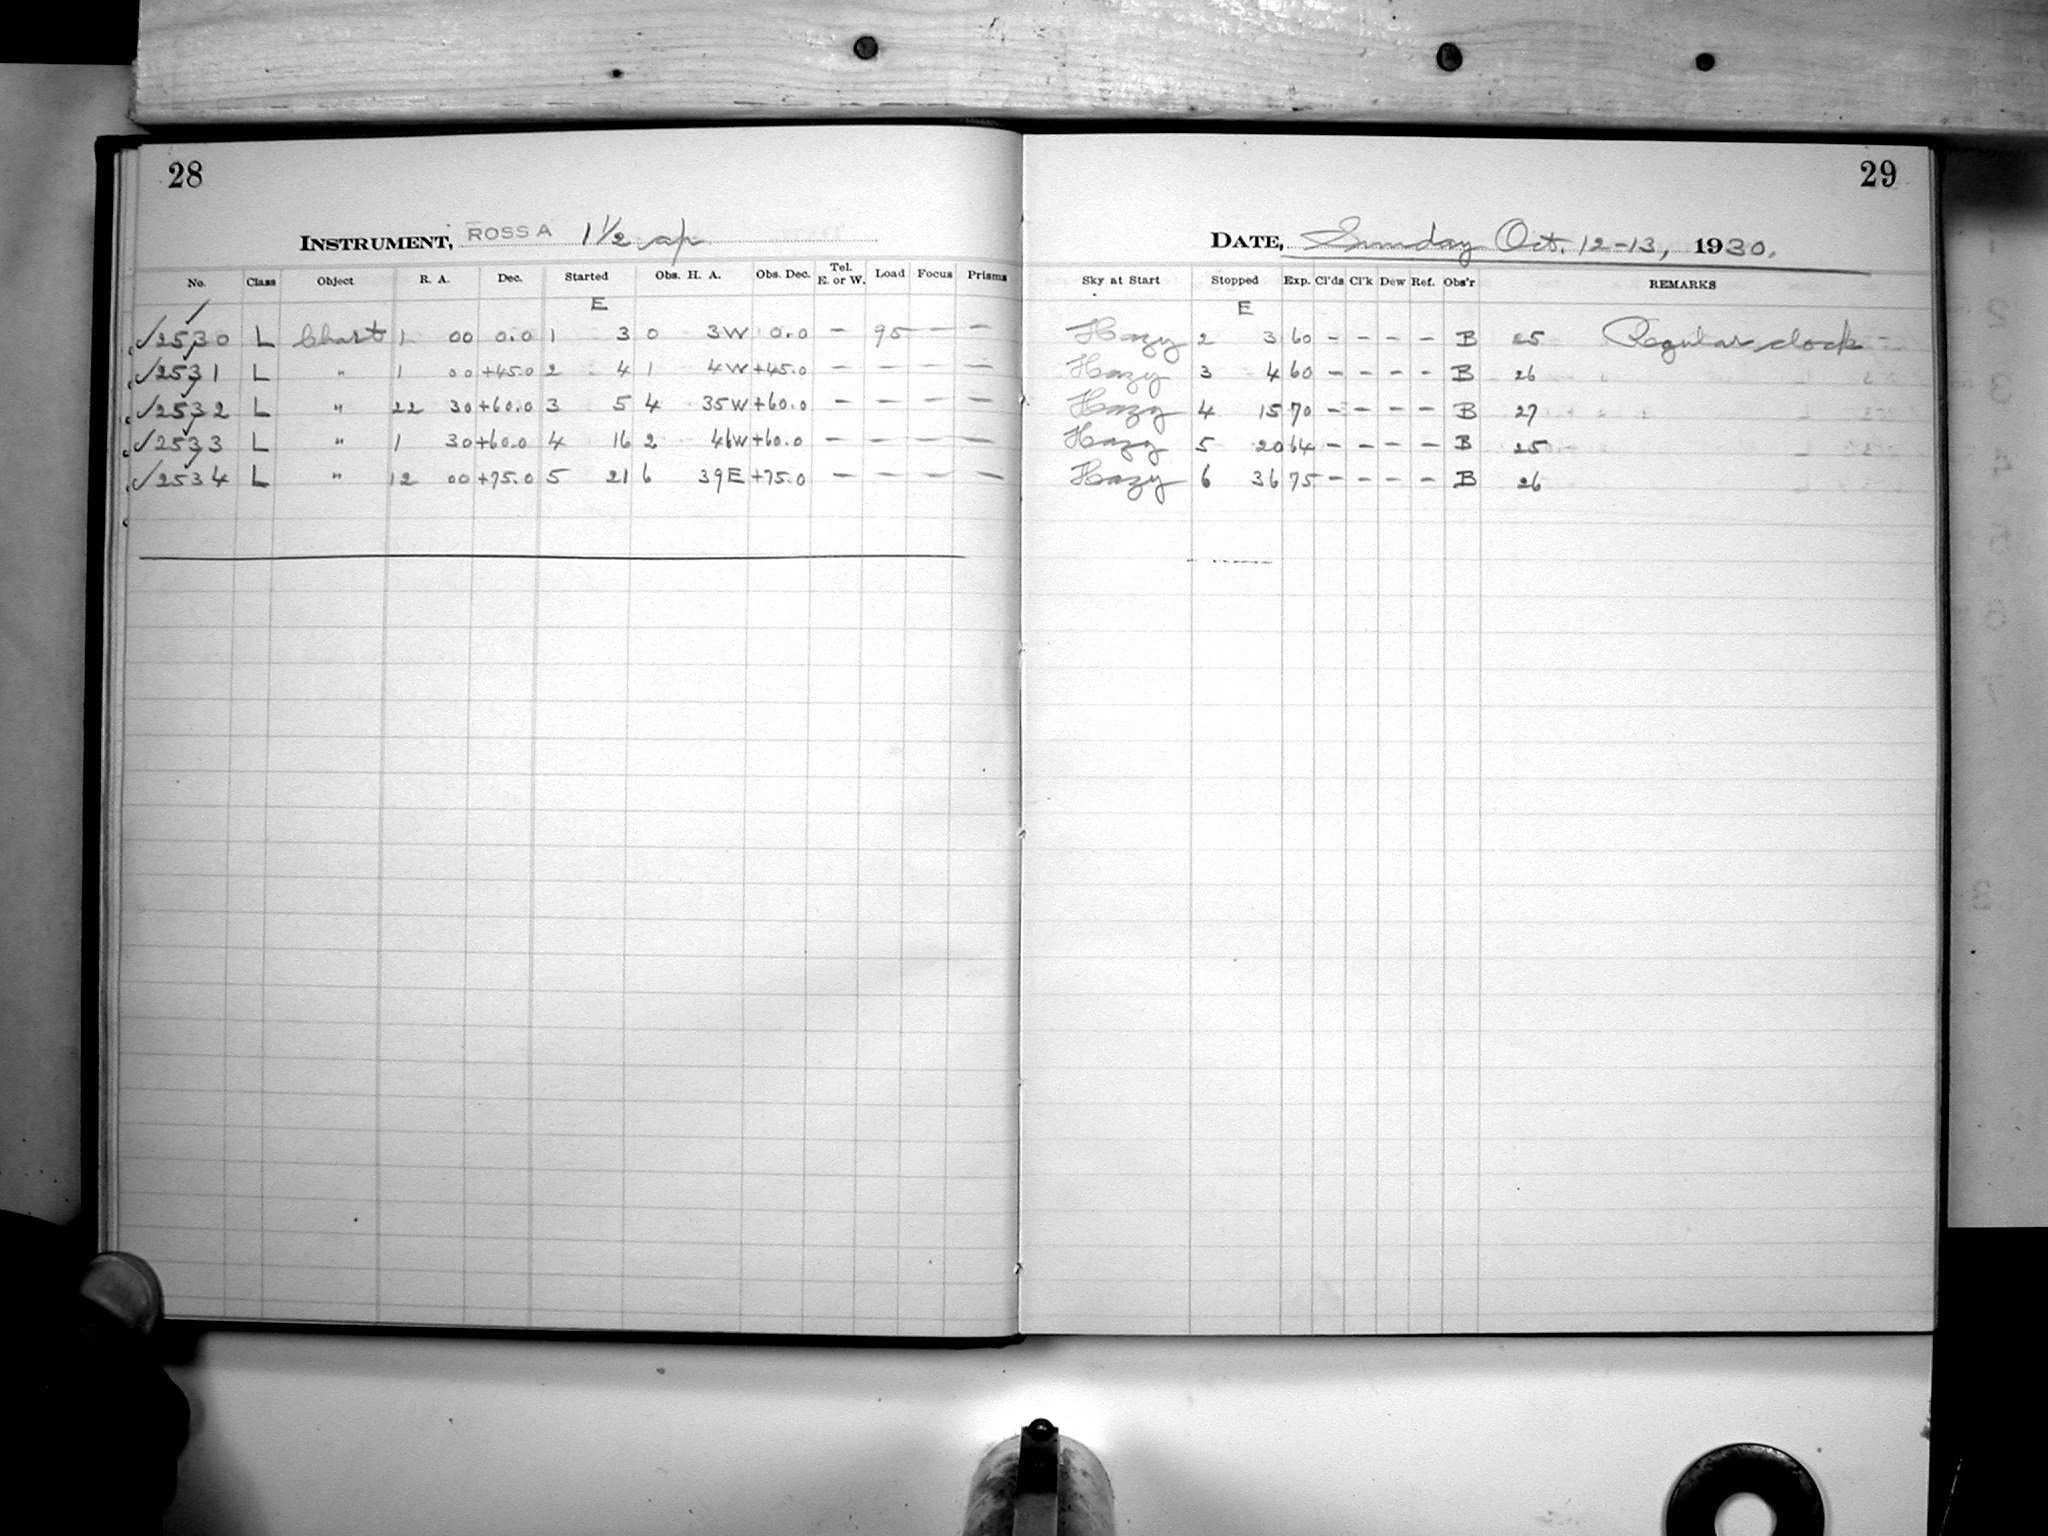 28
INSTRUMENT, ROSS A 1½ ap
No. Class Object R. A. Dec. Started Obs. H. A. Obs. Dec. Tel. E. or W. Load Focus Prisms
E
✓2530 L Chart 1 00 0.0 1 3 0 3W 0.0 — 95 — —
✓2531 L " 1 00 +45.0 2 4 1 4W +45.0 — — — —
✓2532 L " 22 30 +60.0 3 5 4 35W +60.0 — — — —
✓2533 L " 1 30 +60.0 4 16 2 46W +60.0 — — — —
✓2534 L " 12 00 +75.0 5 21 6 39E +75.0 — — — —
29
DATE, Sunday Oct. 12-13, 1930.
Sky at Start Stopped Exp. Cl'ds Cl'k Dew Ref. Obs'r REMARKS
E
Hazy 2 3 60 — — — — B 25 Regular clock
Hazy 3 4 60 — — — — B 26
Hazy 4 15 70 — — — — B 27
Hazy 5 20 64 — — — — B 25
Hazy 6 36 75 — — — — B 26